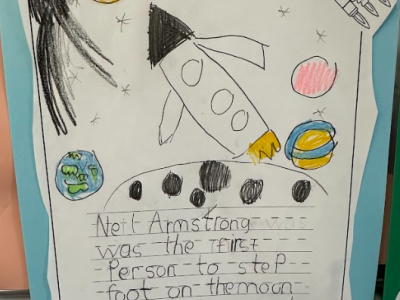 Neil Armstrong
was the first
Person to step
foot on the moon